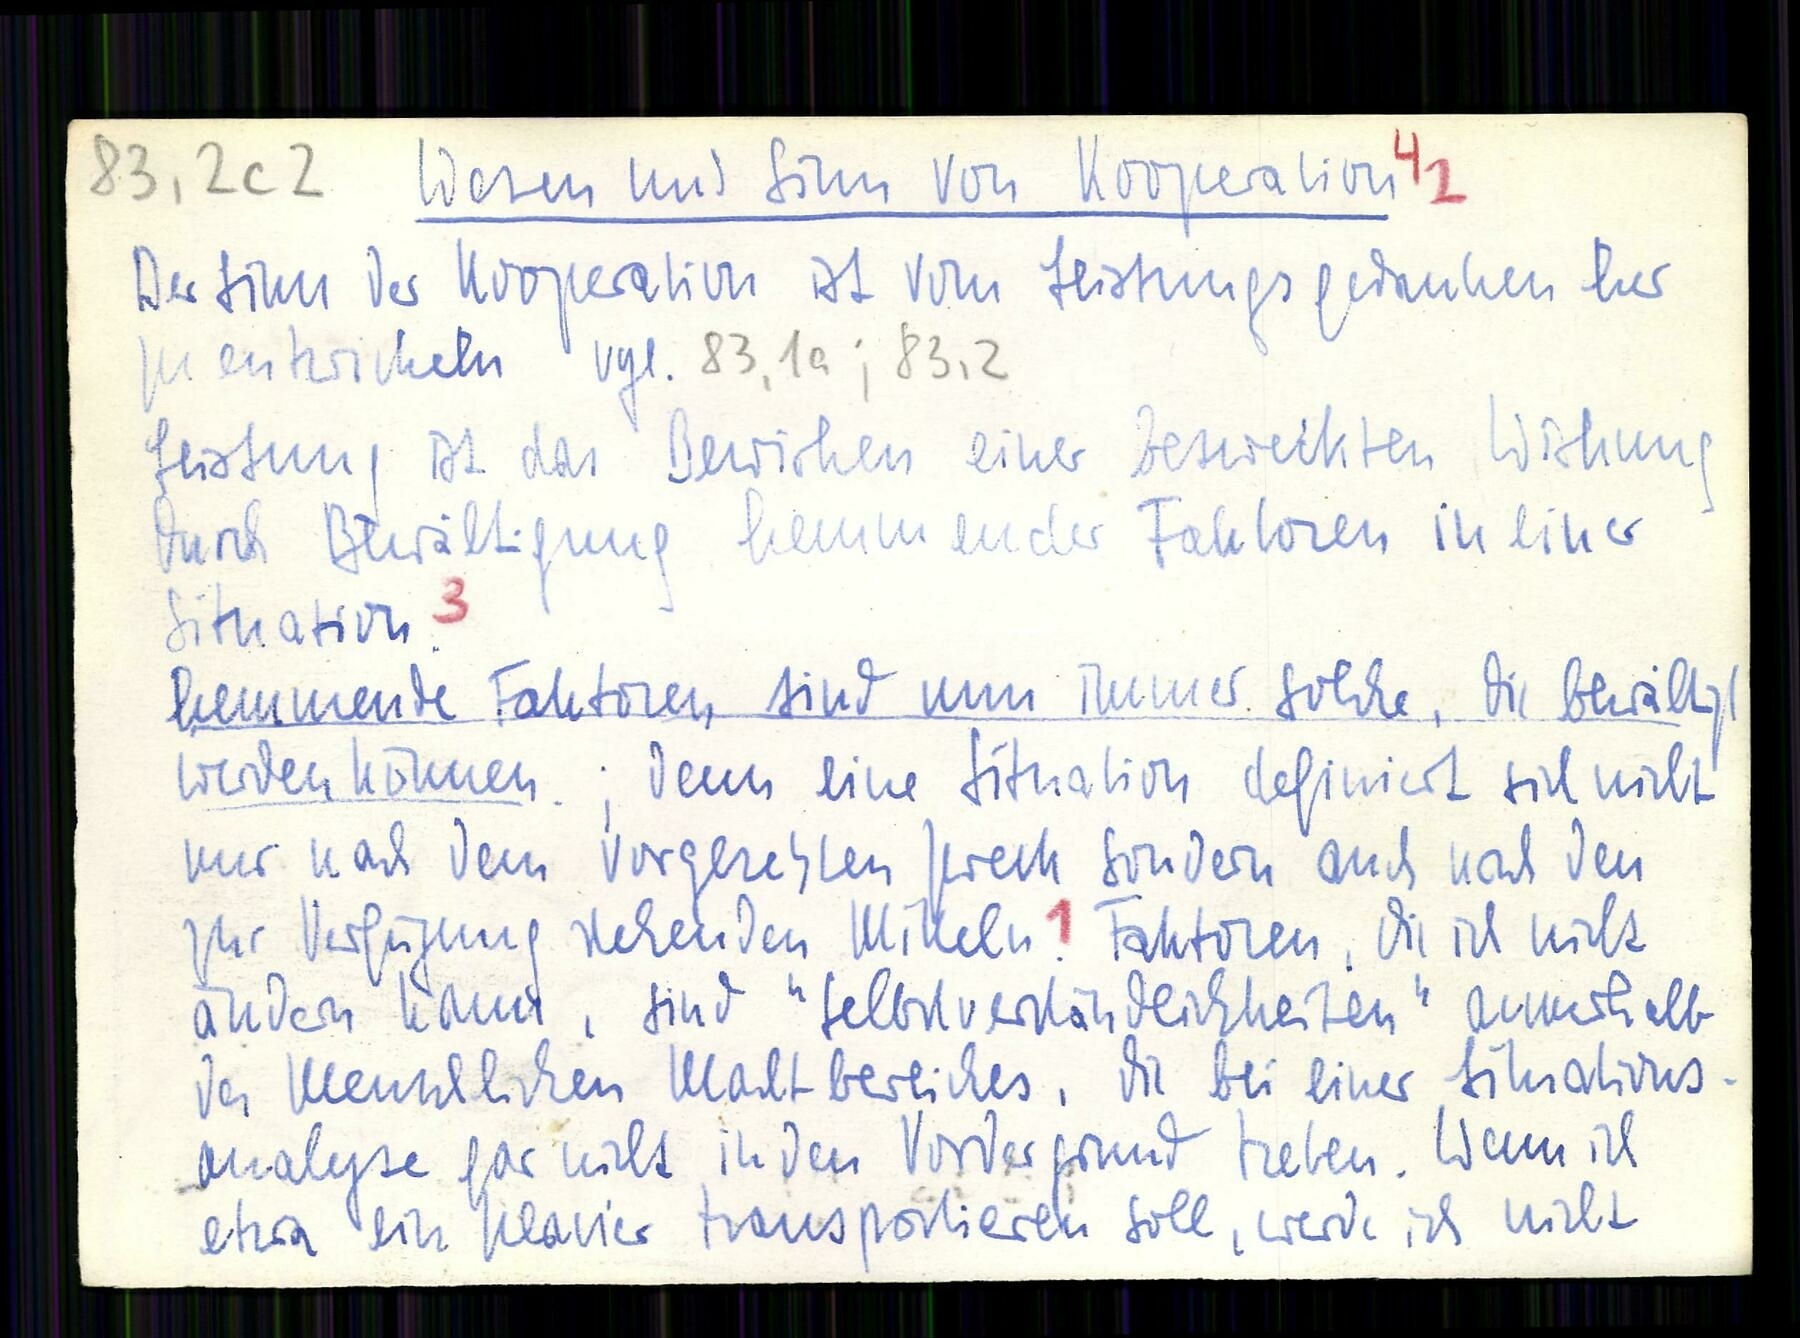 83,2c2 Wesen und Sinn von Kooperation 4/2
Der Sinn der Kooperation ist vom Leistungsgedanken her
zu entwickeln vgl. 83,1a ; 83,2
Leistung ist das Bewirken einer bezweckten Wirkung
durch Bewältigung hemmender Faktoren in einer
Situation. 3
hemmende Faktoren, sind nun immer solche, die bewältigt
werden können. ; denn eine Situation definiert sich nicht
nur nach dem vorgesetzten Zweck sondern auch nach den
zur Verfügung stehenden Mitteln. 1 Faktoren, die ich nicht
ändern kann, sind "Selbstverständlichkeiten" ausserhalb
des Menschlichen Machtbereiches, die bei einer Situations-
analyse gar nicht in den Vordergrund treten. Wenn ich
etwa ein Klavier transportieren soll, werde ich nicht